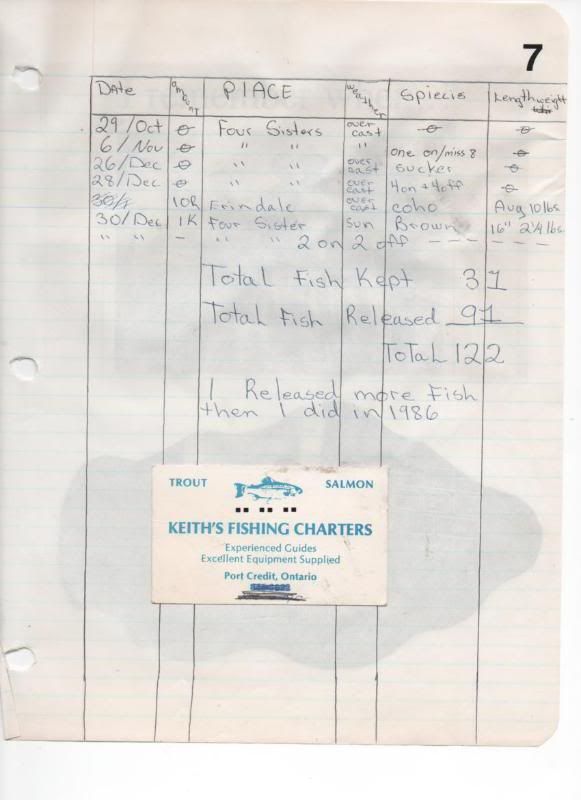 7
Date amount PlACE weather Spiecis Length weight
29/Oct ⊖ Four Sisters over cast ⊖ ⊖
6/Nov ⊖ " " " one on/miss 8 ⊖
26/Dec ⊖ " " over cast sucker ⊖
28/Dec ⊖ " " over cast 4 on + 4 off ⊖
10R Erindale over cast coho Aug 10 lbs
30/Dec 1K Four Sister Sun Brown 16" 2 1/4 lbs
" " - " " 2 on 2 off - - - - -
Total Fish Kept 31
Total Fish Released 91
Total 122
I Released more Fish
then I did in 1986
TROUT SALMON
KEITH'S FISHING CHARTERS
Experienced Guides
Excellent Equipment Supplied
Port Credit, Ontario